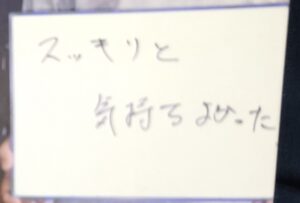 スッキリと
気持ちよかった